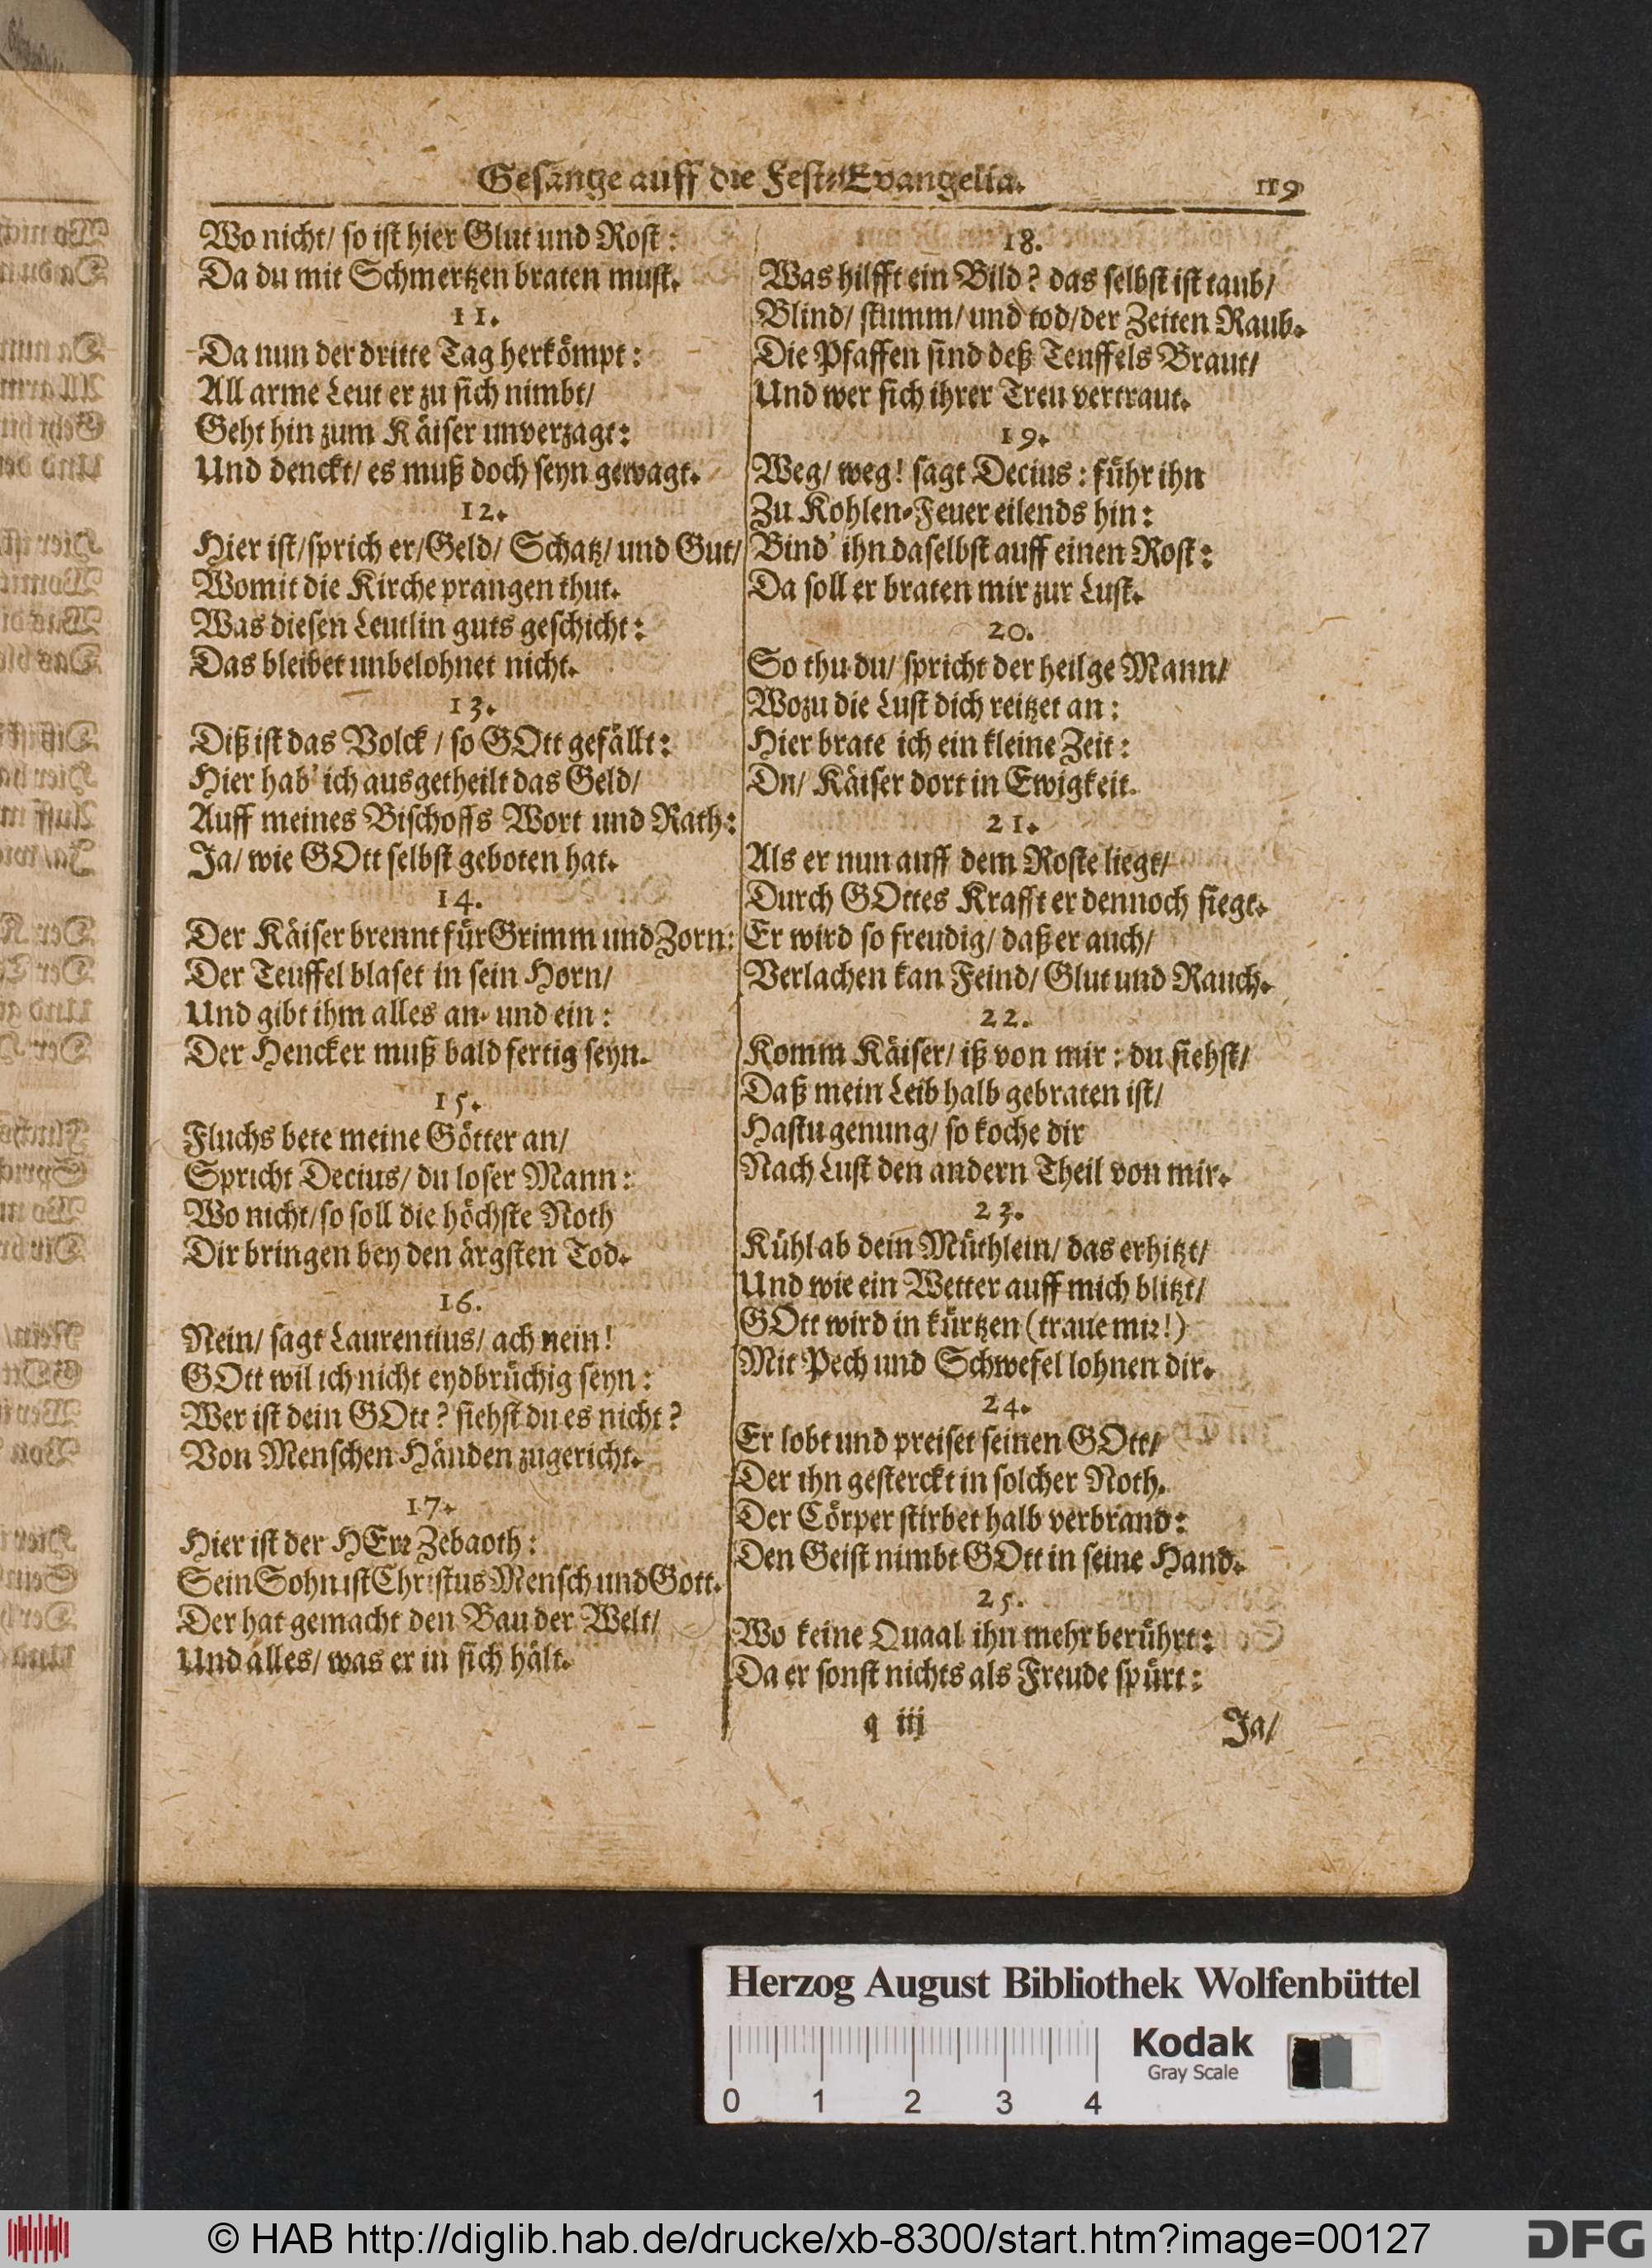 Gesänge auff die Fest-Evangelia.
119
Wo nicht/ so ist hier Glut und Rost:
Da du mit Schmertzen braten must.
11.
Da nun der dritte Tag herkömpt:
All arme Leut er zu sich nimbt/
Geht hin zum Käiser unverzagt:
Und denckt/ es muß doch seyn gewagt.
12.
Hier ist/sprich er/Geld/ Schatz/ und Gut/
Womit die Kirche prangen thut.
Was diesen Leutlin guts geschicht:
Das bleibet unbelohnet nicht.
13.
Diß ist das Volck / so GOtt gefällt:
Hier hab' ich ausgetheilt das Geld/
Auff meines Bischoffs Wort und Rath:
Ja/ wie GOtt selbst geboten hat.
14.
Der Käiser brennt für Grimm und Zorn:
Der Teuffel blaset in sein Horn/
Und gibt ihm alles an- und ein:
Der Hencker muß bald fertig seyn.
15.
Fluchs bete meine Götter an/
Spricht Decius/ du loser Mann:
Wo nicht/so soll die höchste Noth
Dir bringen bey den ärgsten Tod.
16.
Nein/ sagt Laurentius/ ach nein!
GOtt wil ich nicht eydbrüchig seyn:
Wer ist dein GOtt? siehst du es nicht?
Von Menschen Händen zugericht.
17.
Hier ist der HErr Zebaoth:
Sein Sohn ist Christus Mensch und Gott.
Der hat gemacht den Bau der Welt/
Und alles/ was er in sich hält.
18.
Was hilfft ein Bild? das selbst ist taub/
Blind/ stumm/ und tod/der Zeiten Raub.
Die Pfaffen sind deß Teuffels Braut/
Und wer sich ihrer Treu vertraut.
19.
Weg/ weg! sagt Decius: führ ihn
Zu Kohlen-Feuer eilends hin:
Bind' ihn daselbst auff einen Rost:
Da soll er braten mir zur Lust.
20.
So thu du/ spricht der heilge Mann/
Wozu die Lust dich reitzet an:
Hier brate ich ein kleine Zeit:
Du/ Käiser dort in Ewigkeit.
21.
Als er nun auff dem Roste liegt/
Durch GOttes Krafft er dennoch siegt.
Er wird so freudig/ daß er auch/
Verlachen kan Feind/ Glut und Rauch.
22.
Komm Käiser/ iß von mir: du siehst/
Daß mein Leib halb gebraten ist/
Hastu genung/ so koche dir
Nach Lust den andern Theil von mir.
23.
Kühl ab dein Müthlein/ das erhitzt/
Und wie ein Wetter auff mich blitzt/
GOtt wird in kürtzen (traue mir!)
Mit Pech und Schwefel lohnen dir.
24.
Er lobt und preiset seinen GOtt/
Der ihn gesterckt in solcher Noth.
Der Cörper stirbet halb verbrand:
Den Geist nimbt GOtt in seine Hand.
25.
Wo keine Quaal ihn mehr berührt:
Da er sonst nichts als Freude spürt:
q iij
Ja/
Herzog August Bibliothek Wolfenbüttel
Kodak
Gray Scale
0 1 2 3 4
© HAB http://diglib.hab.de/drucke/xb-8300/start.htm?image=00127
DFG